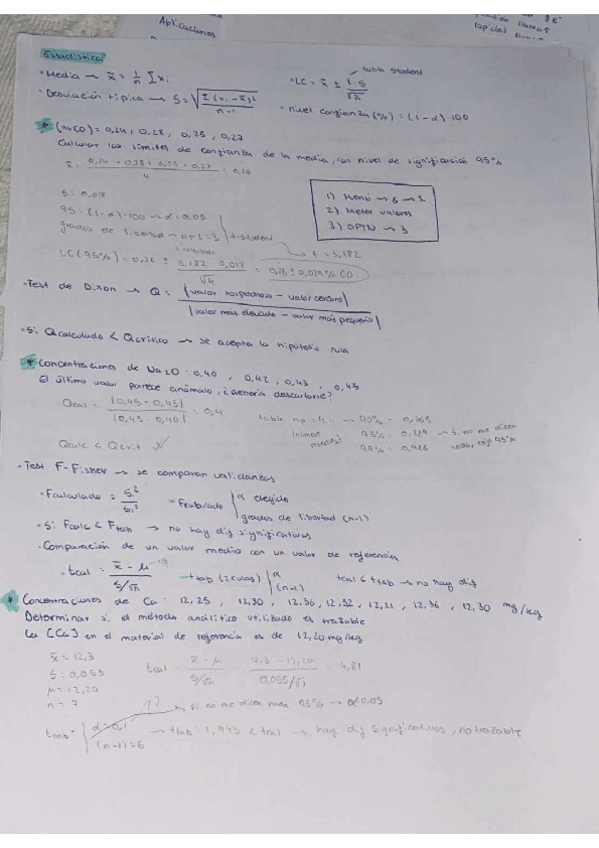 Aplicaciones
Estadística
• Media → x̄ = 1/n Σ xi
• Desviación típica → S = √(Σ(xi - x̄)²/n-1)
tabla student
• LC = x̄ ± t·s/√n
• nivel confianza (%) = (1-α)·100
* (%CO) = 0,24, 0,28, 0,25, 0,27
Calcular los límites de confianza de la media, con nivel de significación 95%
x̄ = 0,24 + 0,28 + 0,25 + 0,27 / 4 = 0,26
S = 0,018
95 = (1-α)·100 → α = 0,05
grados de libertad → n-1 = 3 } t-student
→ t = 3,182
1) Menú → 6 → 1
2) Meter valores
3) OPTN → 3
LC (95%) = 0,26 ± 3,182 · 0,018 / √4 = 0,26 ± 0,029% CO
• Test de Dixon → Q = |valor sospechoso - valor cercano| / |valor más elevado - valor más pequeño|
• Si Qcalculado < Qcrítico → se acepta la hipótesis nula
* Concentraciones de Na2O: 0,40, 0,42, 0,43, 0,45
El último valor parece anómalo, ¿debería descartarse?
Qcal = |0,45 - 0,43| / |0,45 - 0,40| = 0,4
90% = 0,765
95% = 0,829 → si no me dicen
99% = 0,926
Qcalc < Qcrit
• Test F-Fisher → se comparan varianzas
• Fcalculado = S1²/S2²
• Ftabulado { α elegido
grados de libertad (n-1)
• Si Fcalc < Ftab → no hay dif significativas
• Comparación de un valor medio con un valor de referencia
• tcal = x̄ - μ / S/√n
→ ttab (2 colas) { α
(n-1)
tcal < ttab → no hay dif
* Concentraciones de Cu: 12,25, 12,30, 12,36, 12,32, 12,21, 12,36, 12,30 mg/kg
Determinar si el método analítico utilizado es trazable
La [Cu] en el material de referencia es de 12,20 mg/kg
x̄ = 12,3
S = 0,055
μ = 12,20
n = 7
tcal = x̄ - μ / S/√n = 12,3 - 12,20 / 0,055/√7 = 4,81
?? → si no me dicen nada 95% → α 0,05
ttab = { α = 0,1
(n-1) = 6
→ ttab = 1,943 < tcal → hay dif significativas, no trazable